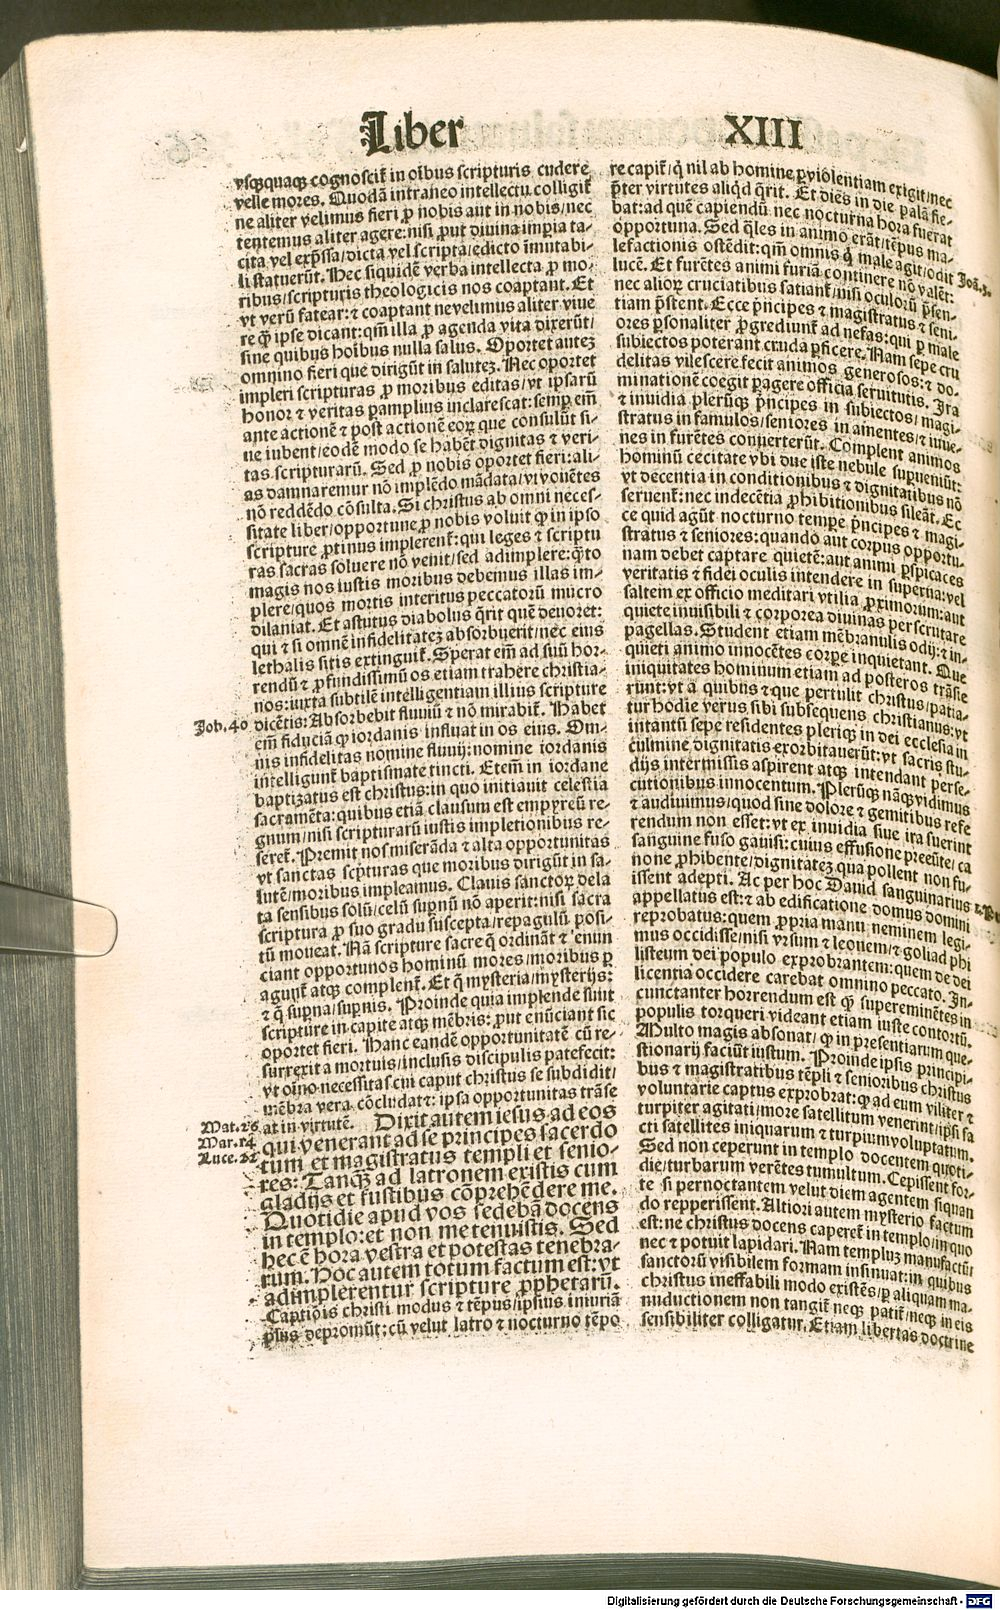 Liber XIII
vsq̄quaq̄ cognoscit̄ in oībus scripturis cudere
velle mores. Quodā intraneo intellectu colligit̄
ne aliter velimus fieri ꝓ nobis aut in nobis/nec
tentemus aliter agere: nisi ꝓut diuina imperia ta-
cita vel exp̄ssa/dicta vel scripta/edicto īmutabi-
li statuerūt. Hec siquidē verba intellecta ꝓ mo-
ribus/scripturis theologicis nos coaptant. Et
vt verū fatear: ⁊ coaptant ne velimus aliter viue
re q̄ȝ ipse dicant: qm̄ illa ꝓ agenda vita dixerūt/
sine quibus hoībus nulla salus. Oportet autez
omnino fieri que dirigūt in salutez. Nec oportet
impleri scripturas ꝓ moribus editas/vt ipsarū
honor ⁊ veritas ꝑamplius inclarescat: semꝑ em̄
ante actionē ⁊ post actionē eoꝝ que consulūt si-
ue iubent/eodē modo se habēt dignitas ⁊ veri-
tas scripturarū. Sed ꝓ nobis oportet fieri: ali-
as damnaremur nō implēdo mādata/vt vouētes
nō reddēdo cōsulta. Si christus ab omni neces-
sitate liber/opportune ꝓ nobis voluit ꝙ in ipso
scripture ꝓtinus implerent̄: qui leges ⁊ scriptu
ras sacras soluere nō venit/sed adimplere: q̄to
magis nos iustis moribus debemus illas im-
plere/quos mortis interitus peccatorū mucro
dilaniat. Et astutus diabolus q̄rit quē deuoret:
qui ⁊ si omnē infidelitatez absorbuerit/nec eius
lethalis sitis extinguit̄. Sperat em̄ ad suū hor-
rendū ⁊ ꝓfundissimū os etiam trahere christia-
nos: iuxta subtilē intelligentiam illius scripture
Job. 40 dicētis: Absorbebit fluuiū ⁊ nō mirabit̄. Habet
em̄ fiduciā ꝙ iordanis influat in os eius. Om-
nis infidelitas nomine fluuij: nomine iordanis
intelligunt̄ baptismate tincti. Etem̄ in iordane
baptizatus est christus: in quo initiauit celestia
sacramēta: quibus etiā clausum est empyreū re-
gnum/nisi scripturarū iustis impletionibus re-
seret̄. Premit nos miserāda ⁊ alta opportunitas
vt sanctas scp̄turas que moribus dirigūt in sa-
lutē/moribus impleamus. Clauis sanctoꝝ dela
ta sensibus solū/celū sup̄nū nō aperit: nisi sacra
scriptura ꝓ suo gradu suscepta/repagulū posi-
tū moueat. Nā scripture sacre q̄ ordināt ⁊ enun
ciant opportunos hominū mores/moribus ꝑ
agunt̄ atq̄ȝ complent̄. Et q̄ mysteria/mysterijs:
⁊ q̄ sup̄na/sup̄nis. Proinde quia implende sunt
scripture in capite atq̄ȝ mēbris: ꝓut enūciant sic
oportet fieri. Hanc eandē opportunitatē cū re-
surrexit a mortuis/inclusis discipulis patefecit:
vt oīno necessitas cui caput christus se subdidit/
mēbra vera cōcludat ⁊: ipsa opportunitas trāse
Mat. 26 at in virtutē. Dixit autem iesus ad eos
Mar. 14 qui venerant ad se principes sacerdo
Luce. 22 tum et magistratus templi et senio-
res: Tanq̄ȝ ad latronem existis cum
gladijs et fustibus cōprehēdere me.
Quotidie apud vos sedebā docens
in templo: et non me tenuistis. Sed
hec ē hora vestra et potestas tenebra-
rum. Hoc autem totum factum est: vt
adimplerentur scripture ꝓphetarū.
Captiōis christi modus ⁊ tēpus/ipsius iniuriā
plus depromūt: cū velut latro ⁊ nocturno tēpo
re capit̄/q̄ nil ab homine ꝑ violentiam exigit/nec
p̄ter virtutes aliq̄d q̄rit. Et dies in die palā fie-
bat: ad quē capiendū nec nocturna hora fuerat
opportuna. Sed q̄les in animo erāt/tēpus ma-
lefactionis ostēdit: qm̄ omnis q̄ male agit/odit Joā. 3.
lucē. Et furētes animi furiā continere nō valēt:
nec alioꝝ cruciatibus satiant̄/nisi oculorū p̄sen-
tiam p̄stent. Ecce p̄ncipes ⁊ magistratus ⁊ seni-
ores ꝑsonaliter ꝓgrediunt̄ ad nefas: qui ꝑ male
subiectos poterant cruda ꝑficere. Nam sepe cru
delitas vilescere fecit animos generosos: ⁊ do-
minationē coegit ꝑagere officia seruitutis. Ira
⁊ inuidia plerūq̄ȝ p̄ncipes in subiectos/magi-
stratus in famulos/seniores in amentes/⁊ iuue-
nes in furētes conuerterūt. Complent animos
hominū cecitate vbi due iste nebule supueniūt:
vt decentia in conditionibus ⁊ dignitatibus nō
seruent̄: nec indecētia ꝓhibitionibus sileāt. Ec
ce quid agūt nocturno tempe p̄ncipes ⁊ magi-
stratus ⁊ seniores: quando aut corpus opportu-
nam debet captare quietē: aut animi ꝑspicaces
veritatis ⁊ fidei oculis intendere in superna: vel
saltem ex officio meditari vtilia ꝓximorum: aut
quiete inuisibili ⁊ corporea diuinas perscrutare
pagellas. Student etiam mēbranulis odij: ⁊ in-
quieti animo innocētes corꝑe inquietant. Que
iniquitates hominum etiam ad posteros trāsie
runt: vt a quibus ⁊ que pertulit christus/patia-
tur hodie verus sibi subsequens christianus: vt
intantū sepe residentes pleriq̄ȝ in dei ecclesia in
culmine dignitatis exorbitauerūt: vt sacris stu-
dijs intermissis aspirent atq̄ȝ intendant perse-
cutionibus innocentum. Plerūq̄ȝ nāq̄ȝ vidimus
⁊ audiuimus/quod sine dolore ⁊ gemitibus refe
rendum non esset: vt ex inuidia siue ira fuerint
sanguine fuso gauisi: cuius effusione preeūte/ca
none ꝓhibente/dignitatez qua pollent non fu-
issent adepti. Ac per hoc Dauid sanguinarius
appellatus est: ⁊ ab edificatione domus domini
reprobatus: quem ꝓpria manu neminem legi-
mus occidisse/nisi vrsum ⁊ leonem/⁊ goliad phi
listeum dei populo exprobrantem: quem de dei
licentia occidere carebat omnino peccato. In-
cunctanter horrendum est ꝙ supereminētes in
populis torqueri videant etiam iuste contortū.
Multo magis absonat/ꝙ in presentiarum que-
stionarij faciūt iustum. Proinde ipsis principi-
bus ⁊ magistratibus tēpli ⁊ senioribus christus
voluntarie captus exprobrat: ꝙ ad eum viliter ⁊
turpiter agitati/more satellitum venerint/ipsi sa
cti satellites iniquarum ⁊ turpium voluptatum.
Sed non ceperunt in templo docentem quoti-
die/turbarum verētes tumultum. Cepissent for-
te si pernoctantem velut diem agentem siquan
do repperissent. Altiori autem mysterio factum
est: ne christus docens caperet̄ in templo/in quo
nec ⁊ potuit lapidari. Nam templuz manufactū
sanctorū visibilem formam insinuat: in quibus
christus ineffabili modo existēs/ꝑ aliquam ma-
nuductionem non tangit̄ neq̄ȝ patit̄/neq̄ȝ in eis
sensibiliter colligatur. Etiam libertas doctrine
Digitalisierung gefördert durch die Deutsche Forschungsgemeinschaft - DFG